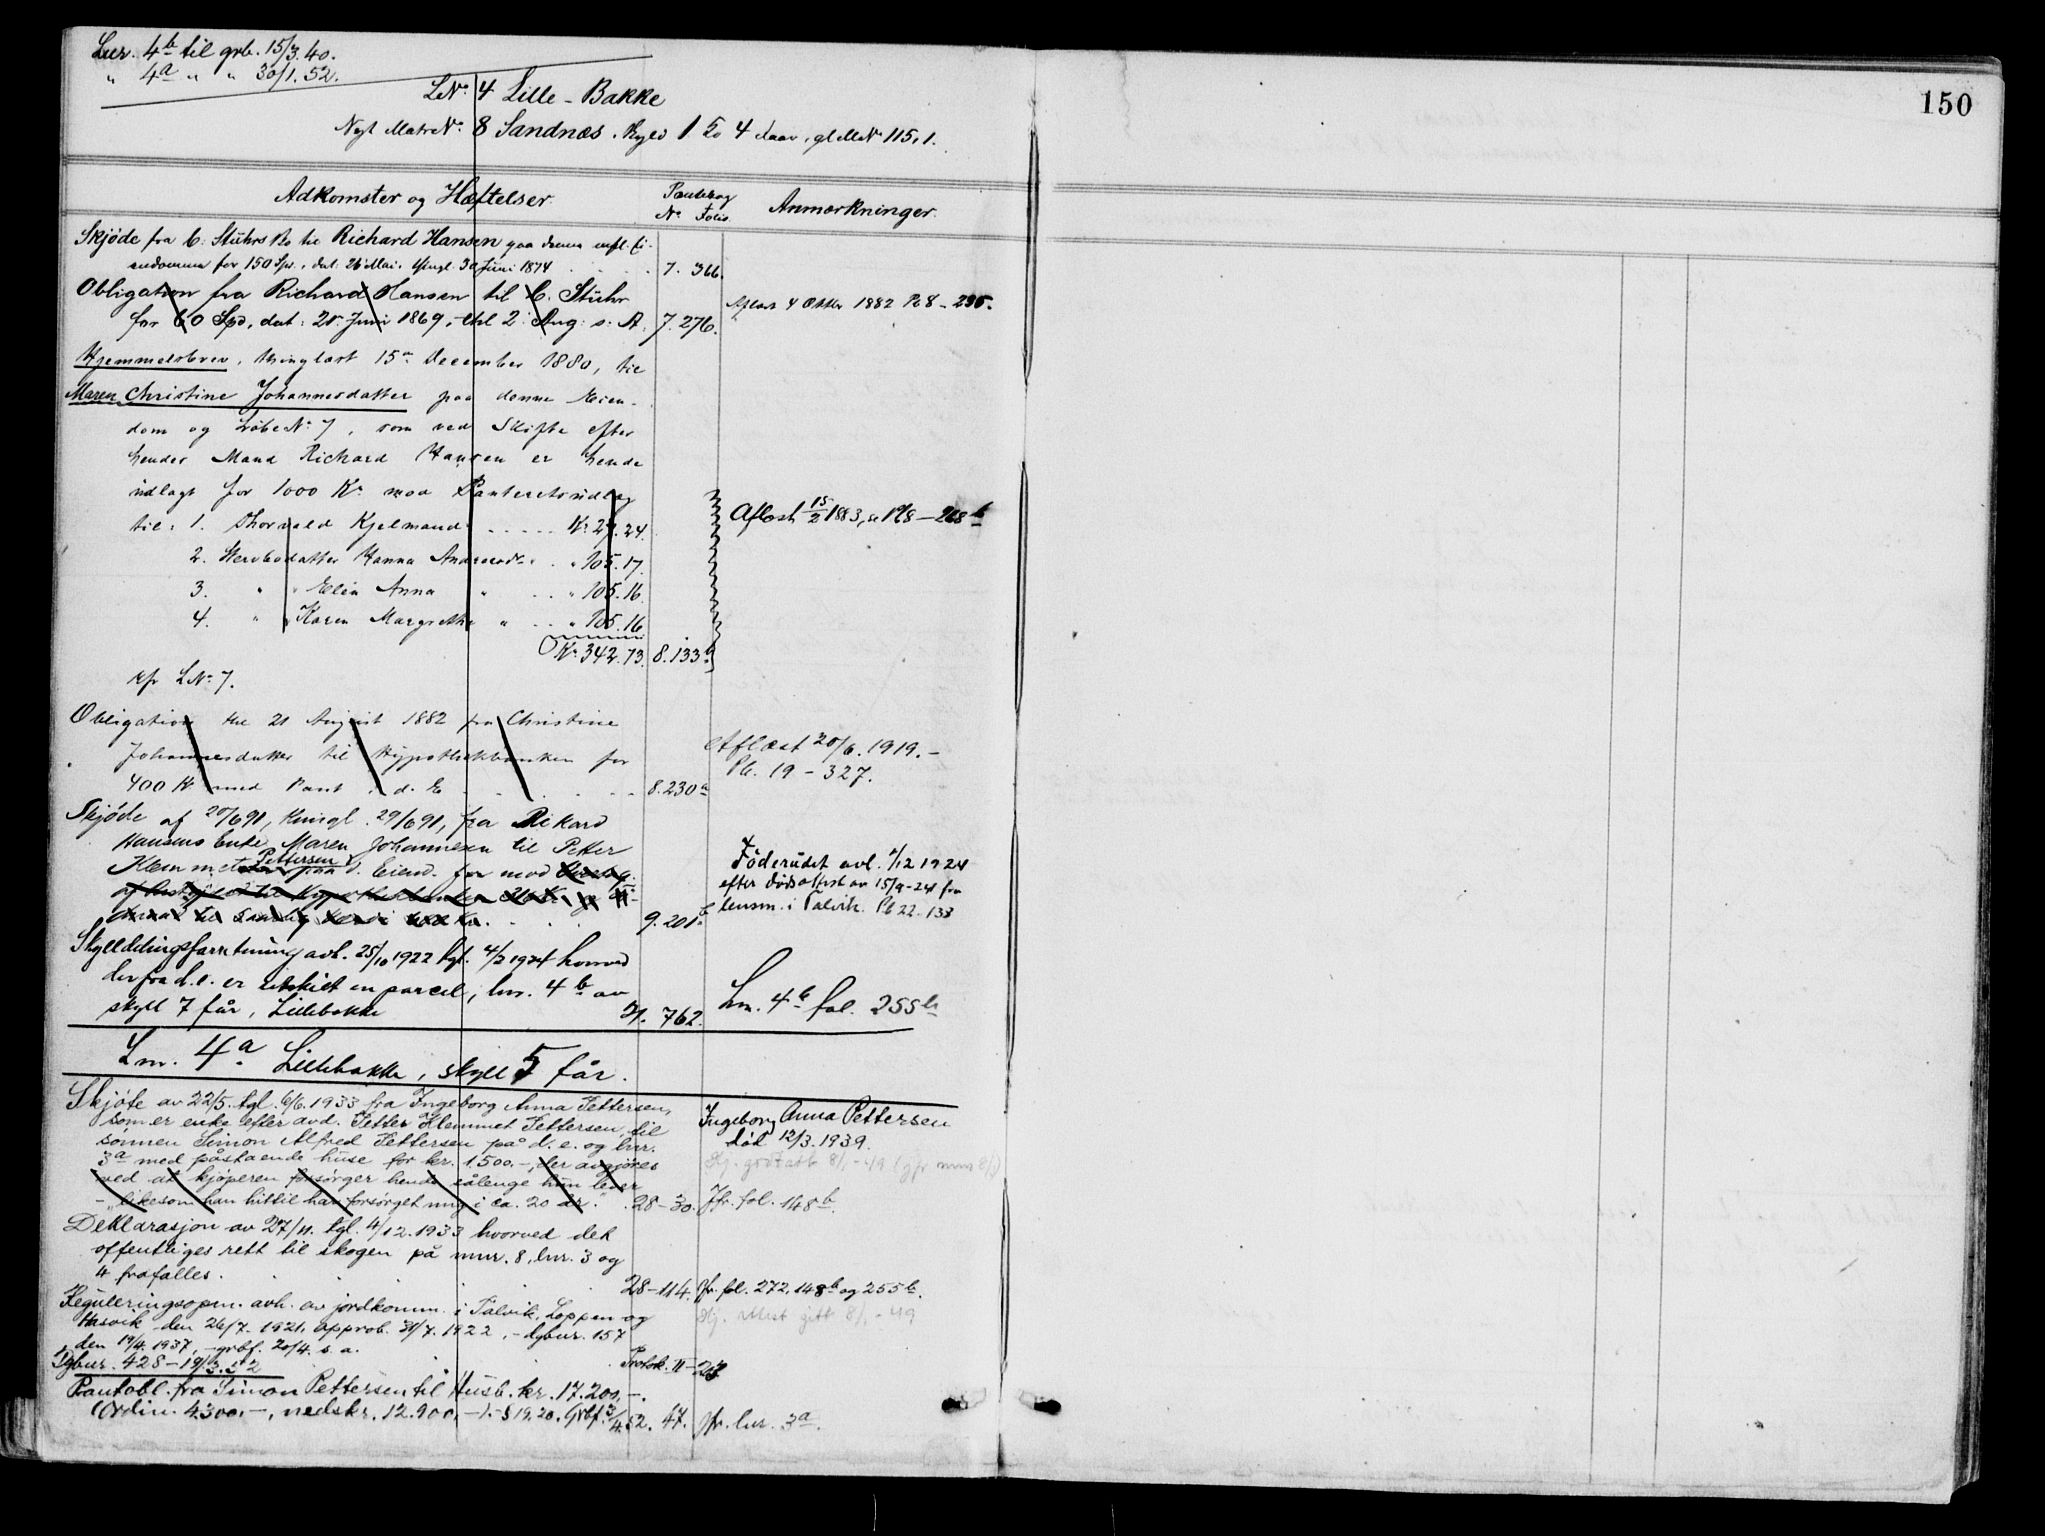 Lnr. 4b til grb. 15/3.40.
" 4a " " 30/1.52.
150
LNo 4 Lille-Bakke
Nyt MatrNo 8 Sandnæs. Skyld 1 5 4 glMNo 115,1.
Adkomster og Hæftelser
Pantebog
No Folio
Anmærkninger.
Skjøde fra C. Stuhrs Bo til Richard Hansen paa denne
for 150 Spd., dat. 26 Mai, thingl. 30 Juni 1874 7. 366.
Obligation fra Richard Hansen til C. Stuhr
for 60 Spd, dat: 25 Juni 1869, thl 2 Aug: s. A. 7. 276.
Aflæst 4 Oktbr 1882 Pb 8 - 235.
Hjemmelsbrev, thinglæst 15de December 1880, til
Maren Christine Johannesdatter paa denne Eien-
dom og LøbeNo 7, som ved Skifte efter
hendes Mand Richard Hansen er hende
udlagt for 1000 Kr mod Panteretsudlæg
til: 1. Thorvald Kjelmand Kr. 27.24.
2. Stervbodatter Hanna Andrea " 105.17.
3. " " Elen Anna " " 105.16.
4. " " Karen Margrethe " " 105.16
Kr. 342.73. 8.133b
Aflæst 15/2 1883, se Pb 8 - 268b
kfr LNo 7.
Obligation thl 21 August 1882 fra Christine
Johannesdatter til Hypothekbanken for
400 Kr med Pant i d. E. 8.230a
Aflæst 20/6. 1919.-
Pb. 19 - 327.
Skjøde af 20/6 91, thingl. 29/6 91, fra Rikard
Hansens Enke, Maren Johannesen til Petter
Klemmet Pettersen paa d. Eiend. for mod
9. 201b
Føderådet avl. 1/12 1924
efter dødsattest av 15/9-24 fra
lensm. i Talvik. Pb 22-133
Skylddelingsforretning avh. 25/10 1922 tgl. 4/2 1924 hvorved
derfra d.e. er utskilt en parcel, lnr. 4b av
skyld 7 får, Lillebakke 21. 762.
Lnr. 4b fol. 255b
Lnr. 4a Lillebakke, skyld 5 får.
Skjøte av 22/5. tgl. 6/6. 1933 fra Ingeborg Anna Pettersen,
som er enke efter avd. Petter Klemmet Pettersen, til
sønnen Simon Alfred Pettersen på d. e. og lnr.
3a med påstående huse for kr. 1.500.-, der avgjøres
ved at kjøperen forsørger hende sålenge hun lever
- "likesom han hittil har forsørget mig i ca. 20 år." 28-30.
Ingeborg Anna Pettersen
død 12/3. 1939.
Jfr. fol. 148b.
Deklarasjon av 27/11. tgl. 4/12. 1933 hvorved det
offentliges rett til skogen på mnr. 8, lnr. 3 og
4 frafalles. 28-114. Jfr. fol. 272, 148b og 255b.
Reguleringsopm. avh. av jordkomm. i Talvik, Loppen og
Hasvik den 26/7. 1921, approb. 31/7. 1922, - dgbnr. 157
den 19/4. 1937, - grbf. 20/4. s. a. Protok. II-23
Dgbnr. 428-19/3.52
Pantobl. fra Simon Pettersen til Husb. kr. 17.200,-.
(Ordin. 4.300.-, nedskr. 12.900,-). - § 19.20. Grbf. 3/4.52. 47. Jfr. lnr. 3a.